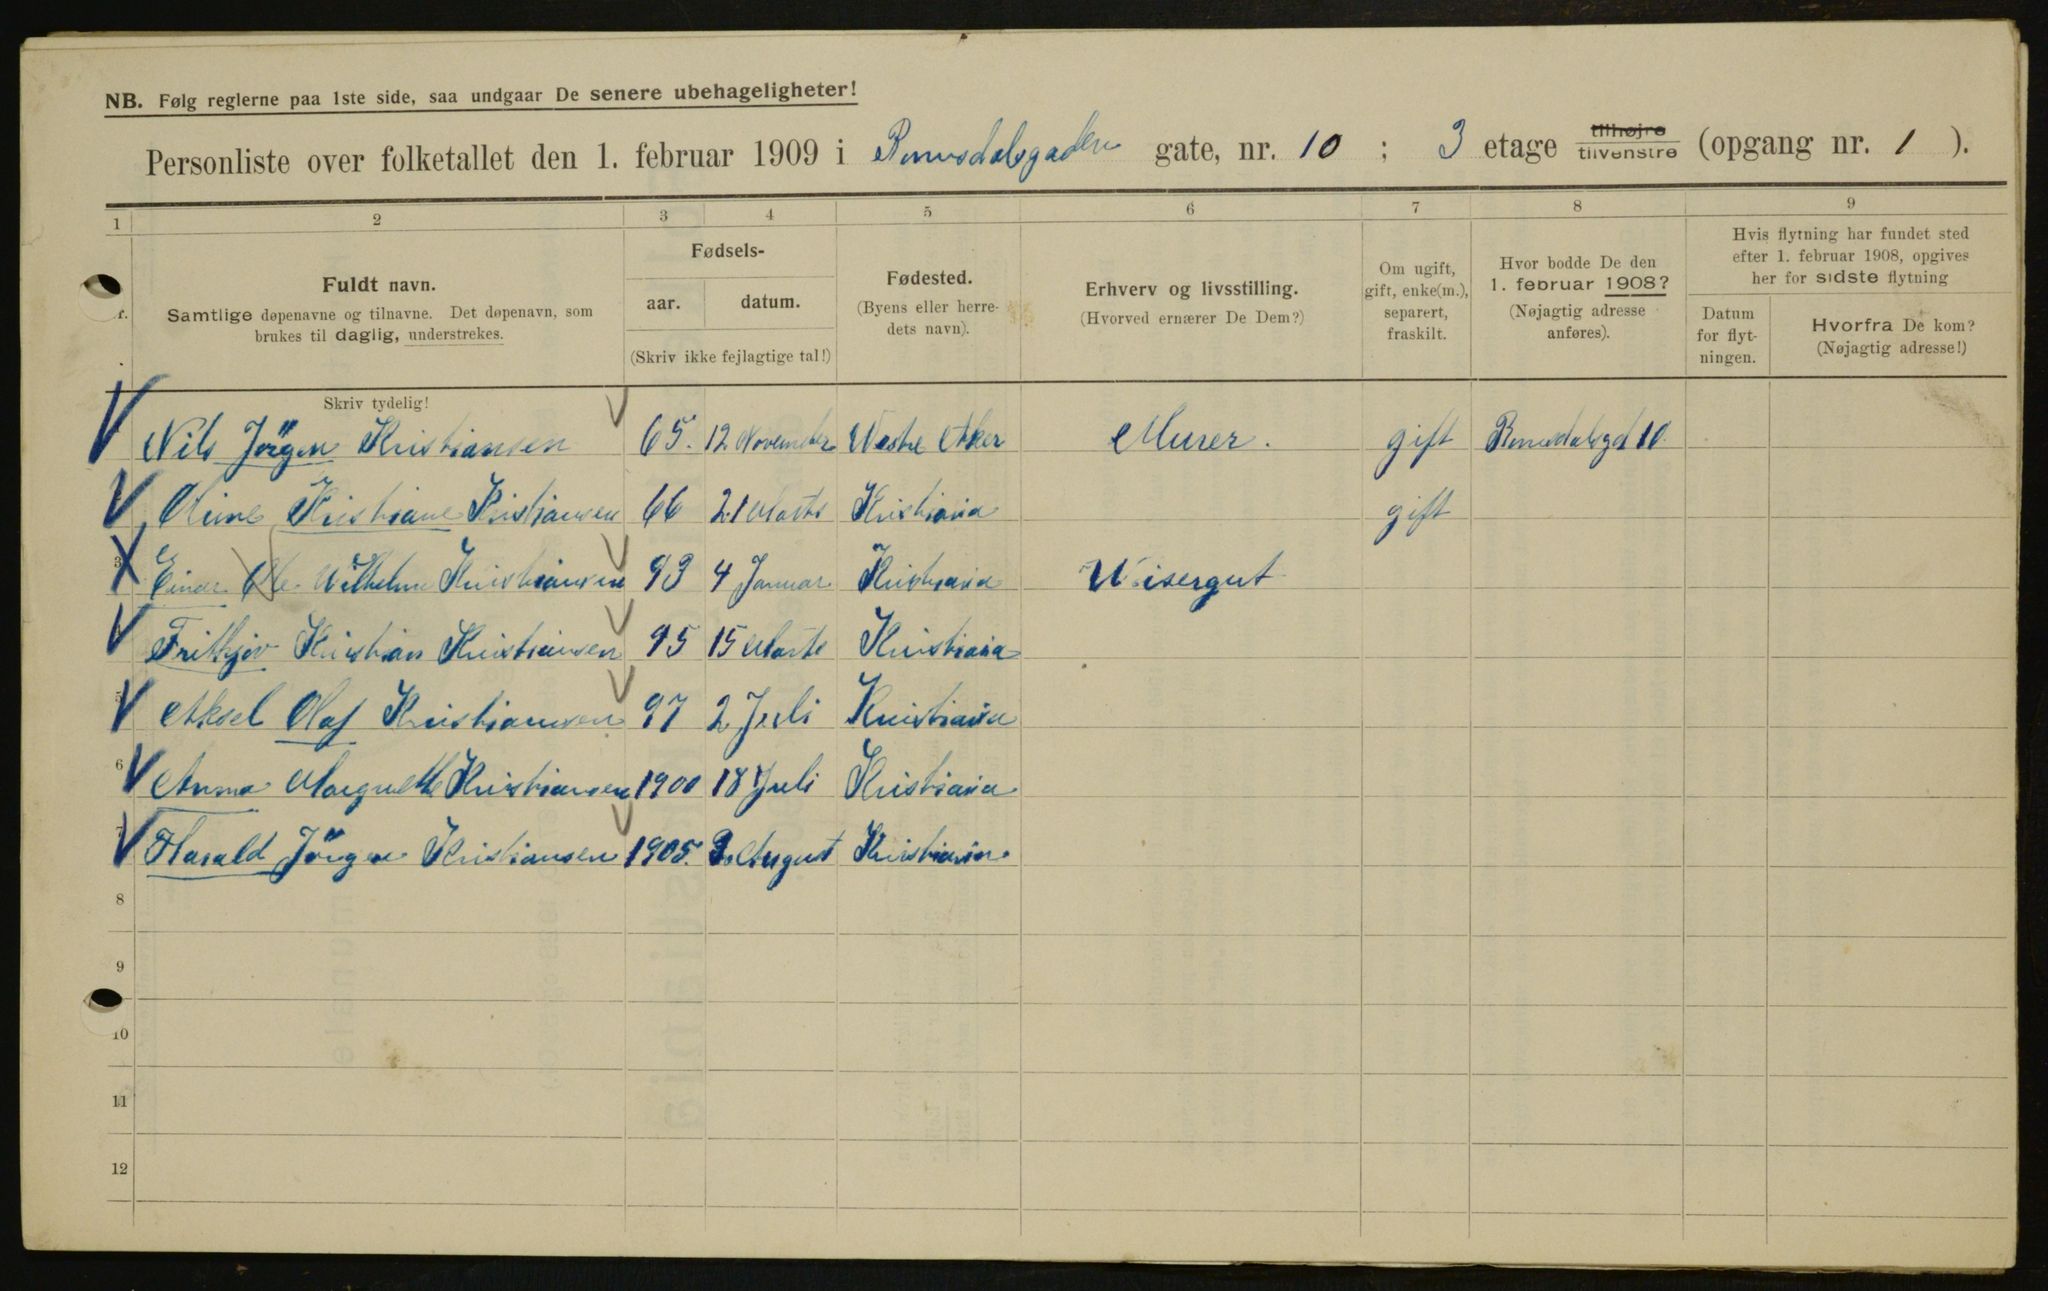 NB. Følg reglerne paa 1ste side, saa undgaar De senere ubehageligheter!
Personliste over folketallet den 1. februar 1909 i Romsdalsgaden gate, nr. 10 ; 3 etage tilhøjre tilvenstre (opgang nr. 1 ).
1 2 3 4 5 6 7 8 9
Fuldt navn.
Samtlige døpenavne og tilnavne. Det døpenavn, som
brukes til daglig, understrekes.
Fødsels-
aar. datum.
(Skriv ikke fejlagtige tal!)
Fødested.
(Byens eller herre-
dets navn).
Erhverv og livsstilling.
(Hvorved ernærer De Dem?)
Om ugift,
gift, enke(m.),
separert,
fraskilt.
Hvor bodde De den
1. februar 1908?
(Nøjagtig adresse
anføres).
Hvis flytning har fundet sted
efter 1. februar 1908, opgives
her for sidste flytning
Datum
for flyt-
ningen.
Hvorfra De kom?
(Nøjagtig adresse!)
Skriv tydelig!
Nils Jörgen Kristiansen 65. 12 November Westre Aker Murer. gift Romsdalsgd 10
Kristiane Kristiansen 66 21 Marts Kristiania gift
3 Einar Ole Wilhelm Kristiansen 93 4 Januar Kristiania Visergut
Frithjov Kristian Kristiansen 95 15 Marts Kristiania
5 Aksel Olaf Kristiansen 97 2 Juli Kristiania
6 Anna Margrethe Kristiansen 1900 18 Juli Kristiania
7 Harald Jörgen Kristiansen 1905. August Kristiania
8
9
10
11
12